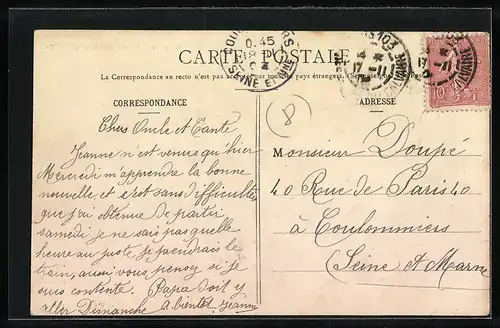 CARTE POSTALE
La Correspondance au recto n'est pas acceptée par tous les pays étrangers.
CORRESPONDANCE
ADRESSE
0.45
SEINE ET MARNE
CALVADOS
10
8
Chers Oncle et Tante
Jeanne n'est venue qu'hier
Mercredi m'apprendre la bonne
nouvelle et c'est sans difficultés
que j'ai obtenue de partir
samedi je ne sais pas quelle
heure au juste je prendrais le
train, aussi vous pensez si je
suis contente. Papa doit y
aller Dimanche A bientôt. Jeanne
Monsieur Doupé
40 Rue de Paris 40
à Coulommiers
(Seine et Marne